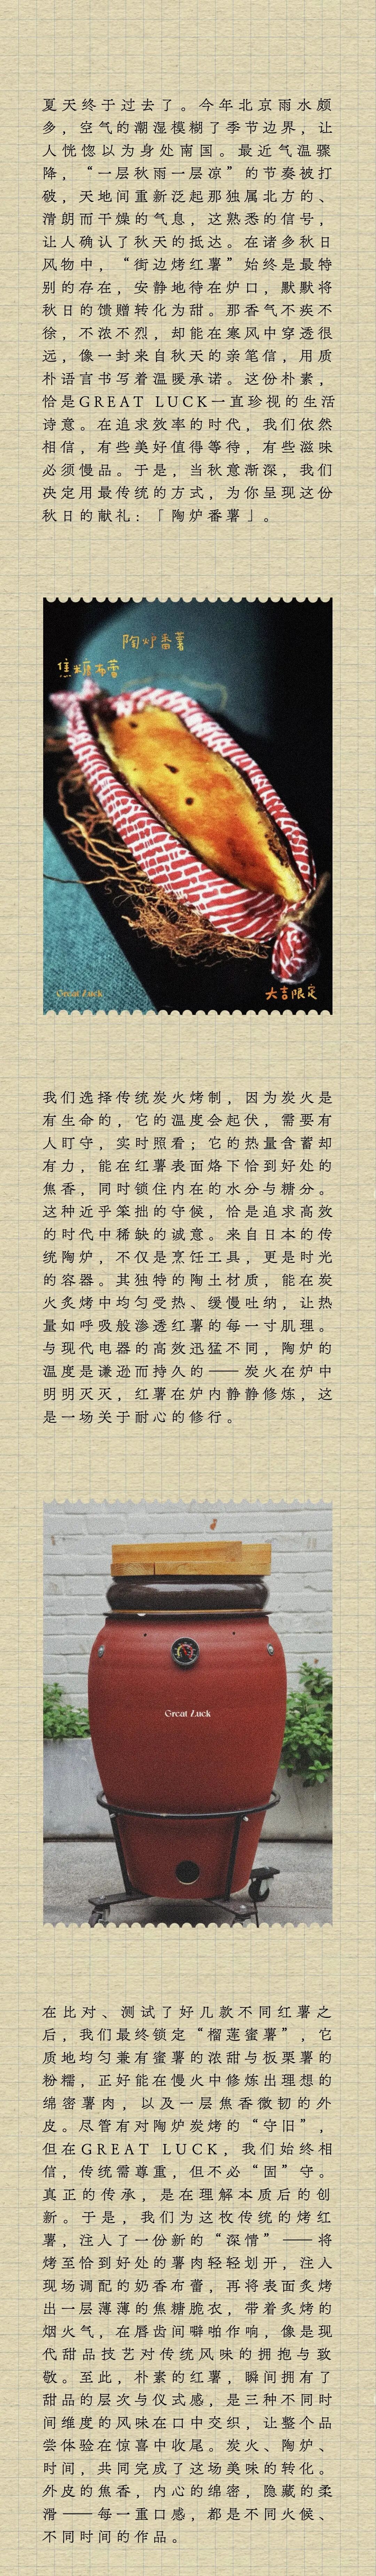 夏天终于过去了。今年北京雨水颇
多，空气的潮湿模糊了季节边界，让
人恍惚以为身处南国。最近气温骤
降，“一层秋雨一层凉”的节奏被打
破，天地间重新泛起那独属北方的、
清朗而干燥的气息，这熟悉的信号，
让人确认了秋天的抵达。在诸多秋日
风物中，“街边烤红薯”始终是最特
别的存在，安静地待在炉口，默默将
秋日的馈赠转化为甜。那香气不疾不
徐，不浓不烈，却能在寒风中穿透很
远，像一封来自秋天的亲笔信，用质
朴语言书写着温暖承诺。这份朴素，
恰是GREAT LUCK一直珍视的生活
诗意。在追求效率的时代，我们依然
相信，有些美好值得等待，有些滋味
必须慢品。于是，当秋意渐深，我们
决定用最传统的方式，为你呈现这份
秋日的献礼：「陶炉番薯」。
陶炉番薯
焦糖布蕾
Great Luck
大吉限定
我们选择传统炭火烤制，因为炭火是
有生命的，它的温度会起伏，需要有
人盯守，实时照看；它的热量含蓄却
有力，能在红薯表面烙下恰到好处的
焦香，同时锁住内在的水分与糖分。
这种近乎笨拙的守候，恰是追求高效
的时代中稀缺的诚意。来自日本的传
统陶炉，不仅是烹饪工具，更是时光
的容器。其独特的陶土材质，能在炭
火炙烤中均匀受热、缓慢吐纳，让热
量如呼吸般渗透红薯的每一寸肌理。
与现代电器的高效迅猛不同，陶炉的
温度是谦逊而持久的——炭火在炉中
明明灭灭，红薯在炉内静静修炼，这
是一场关于耐心的修行。
Great Luck
在比对、测试了好几款不同红薯之
后，我们最终锁定“榴莲蜜薯”，它
质地均匀兼有蜜薯的浓甜与板栗薯的
粉糯，正好能在慢火中修炼出理想的
绵密薯肉，以及一层焦香微韧的外
皮。尽管有对陶炉炭烤的“守旧”，
但在GREAT LUCK，我们始终相
信，传统需尊重，但不必“固”守。
真正的传承，是在理解本质后的创
新。于是，我们为这枚传统的烤红
薯，注入了一份新的“深情”——将
烤至恰到好处的薯肉轻轻划开，注入
现场调配的奶香布蕾，再将表面炙烤
出一层薄薄的焦糖脆衣，带着炙烤的
烟火气，在唇齿间噼啪作响，像是现
代甜品技艺对传统风味的拥抱与致
敬。至此，朴素的红薯，瞬间拥有了
甜品的层次与仪式感，是三种不同时
间维度的风味在口中交织，让整个品
尝体验在惊喜中收尾。炭火、陶炉、
时间，共同完成了这场美味的转化。
外皮的焦香，内心的绵密，隐藏的柔
滑——每一重口感，都是不同火候、
不同时间的作品。